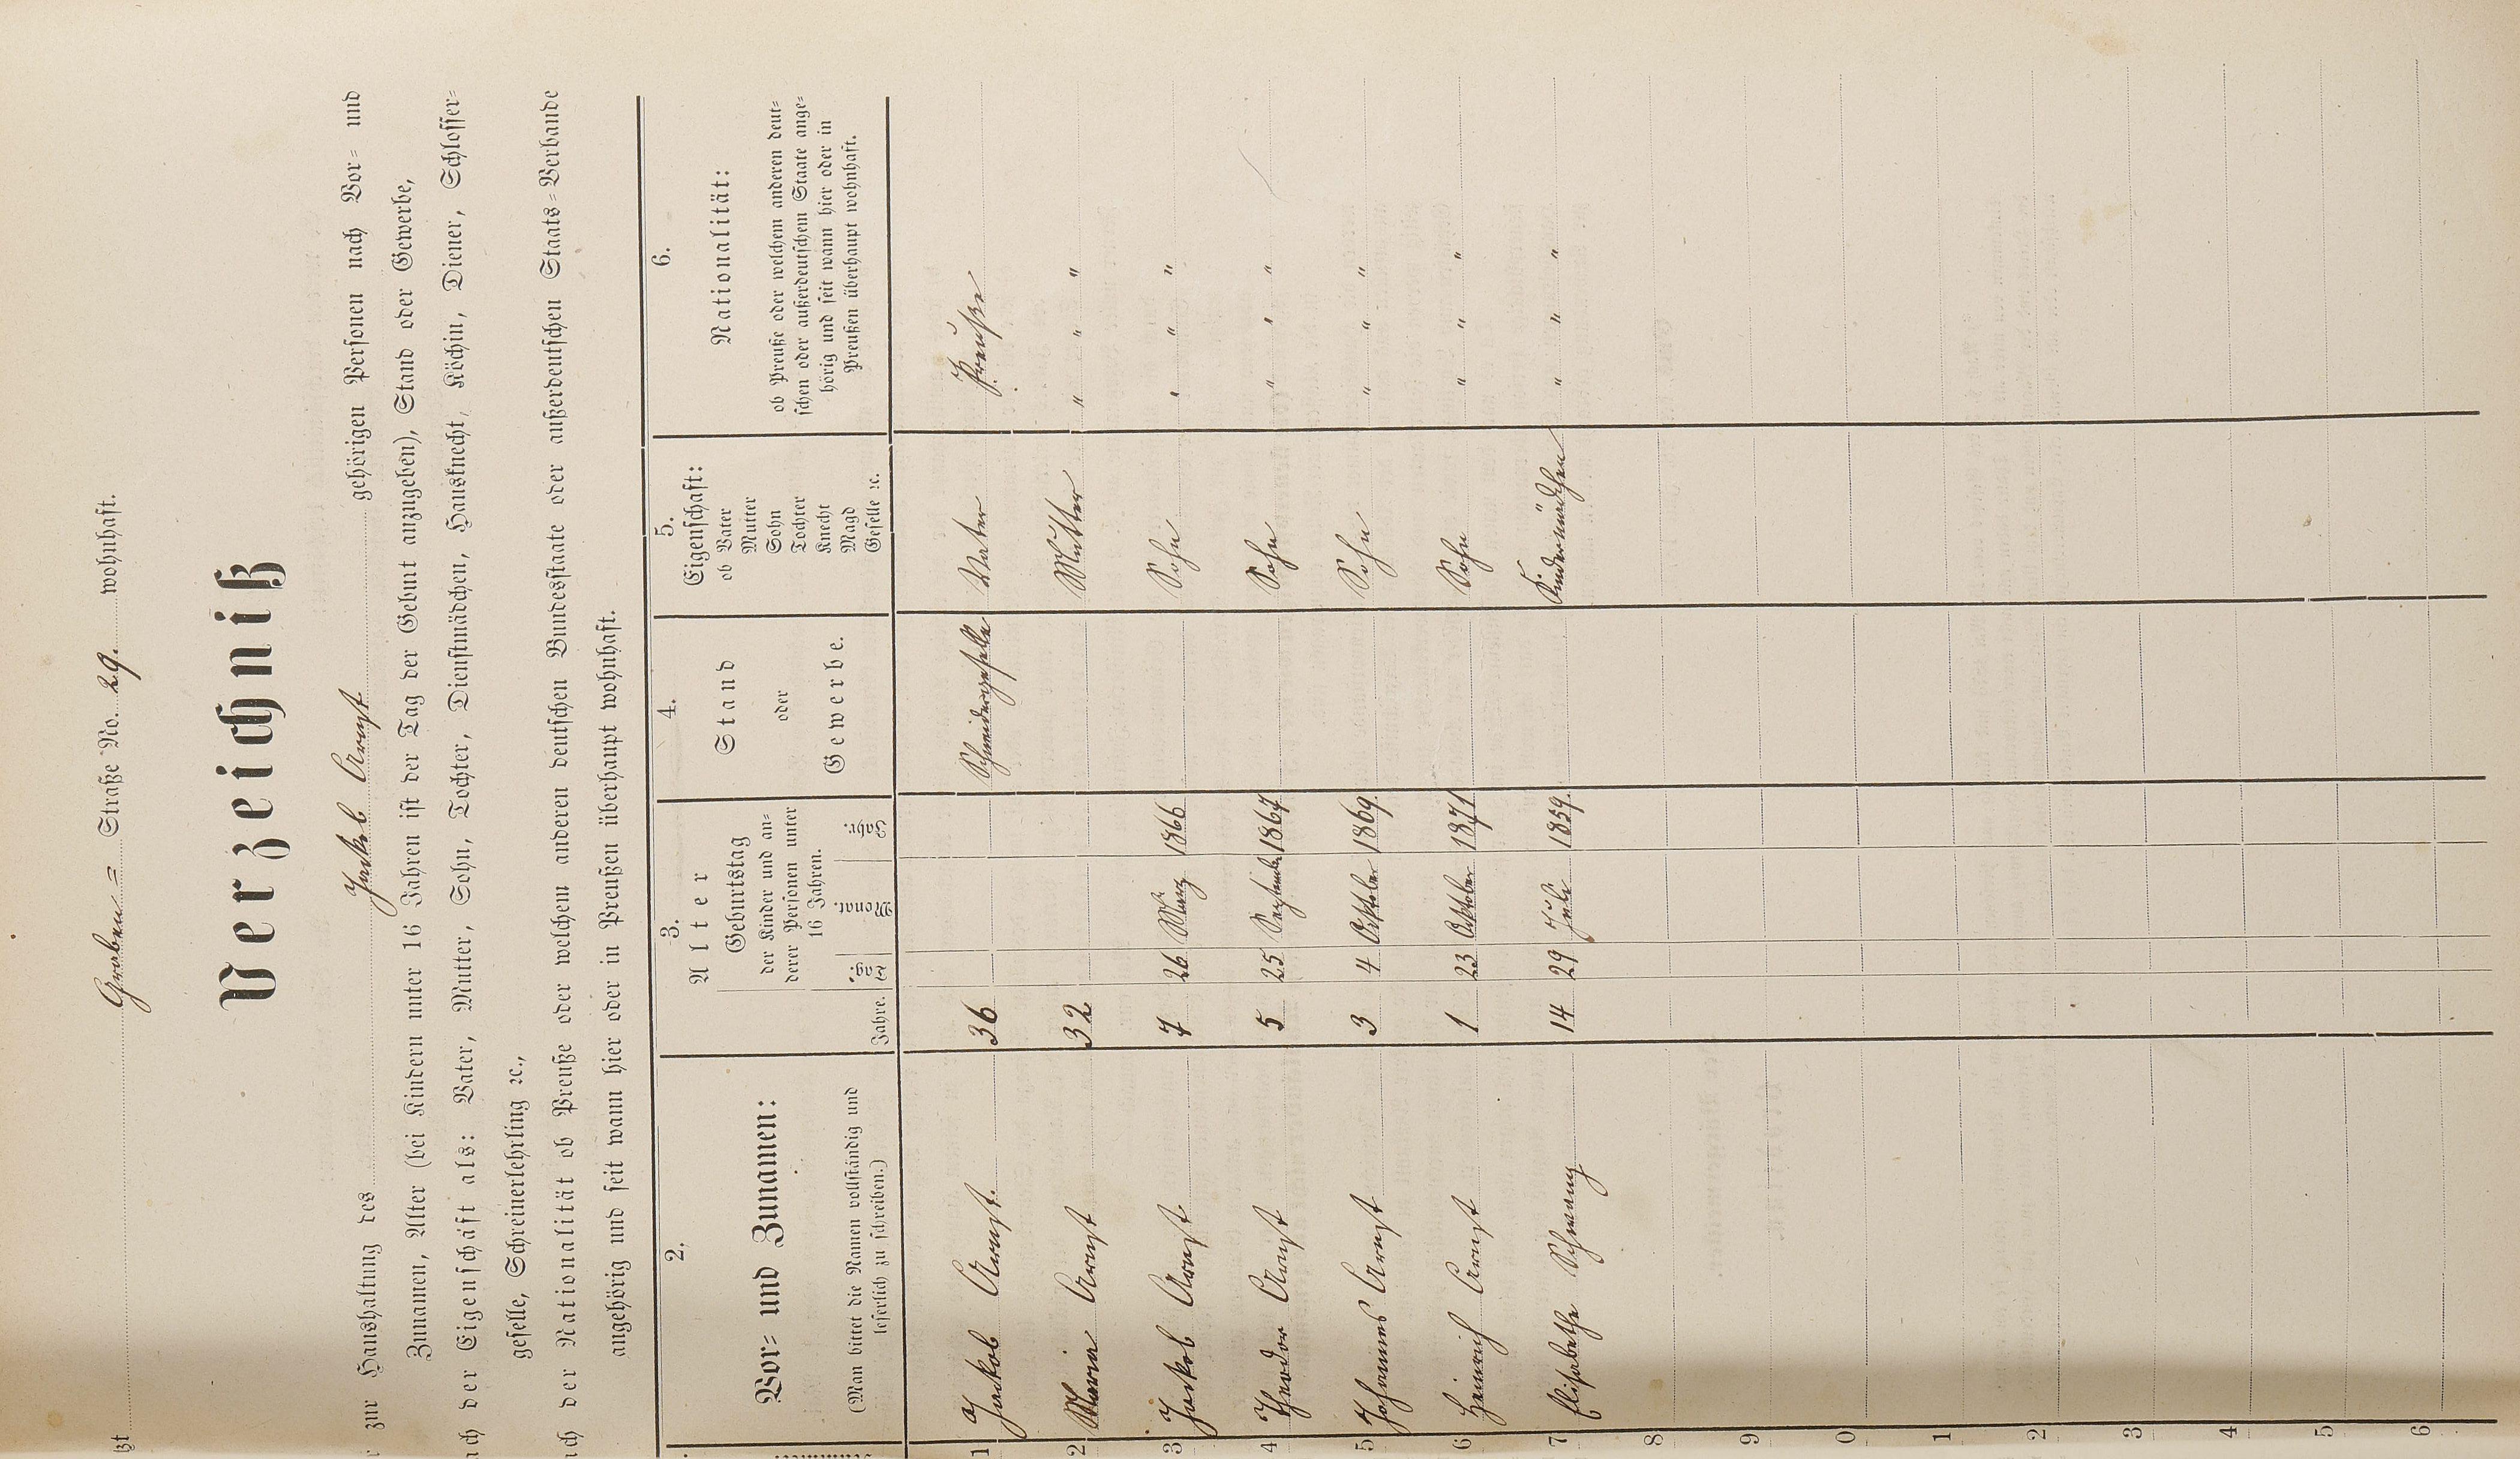 zt Graben = Straße No. 29. wohnhaft.
Verzeichniß
r zur Haushaltung des Jackob Arnst gehörigen Personen nach Vor= und
Zunamen, Alter (bei Kindern unter 16 Jahren ist der Tag der Geburt anzugeben), Stand oder Gewerbe,
ach der Eigenschaft als: Vater, Mutter, Sohn, Tochter, Dienstmädchen, Hausknecht, Köchin, Diener, Schlosser=
geselle, Schreinerlehrling ꝛc.,
ach der Nationalität ob Preuße oder welchem anderen deutschen Bundesstaate oder außerdeutschen Staats=Verbande
angehörig und seit wann hier oder in Preußen überhaupt wohnhaft.
2. 3. 4. 5. 6.
Vor= und Zunamen:
(Man bittet die Namen vollständig und
leserlich zu schreiben.)
Alter
Jahre.
Geburtstag
der Kinder und an=
derer Personen unter
16 Jahren.
Tag. Monat. Jahr.
Stand
oder
Gewerbe.
Eigenschaft:
ob Vater
Mutter
Sohn
Tochter
Knecht
Magd
Geselle ꝛc.
Nationalität:
ob Preuße oder welchem anderen deut=
schen oder außerdeutschem Staate ange=
hörig und seit wann hier oder in
Preußen überhaupt wohnhaft.
1 Jackob Arnst. 36 Schneidergeselle Vater Preuße
2 Maria Arnst 32 Mutter " " "
3 Jackob Arnst 7 26 März 1866 Sohn " " "
4 Theodor Arnst 5 25 September 1867 Sohn " " "
5 Johannes Arnst 3 4 Oktober 1869 Sohn " " "
6 Heinrich Arnst 1 23 Oktober 1871 Sohn " " "
7 Elisabethe Schwang 14 29 Juli 1859. Kindermädchen " " "
8
9
0
1
2
3
4
5
6